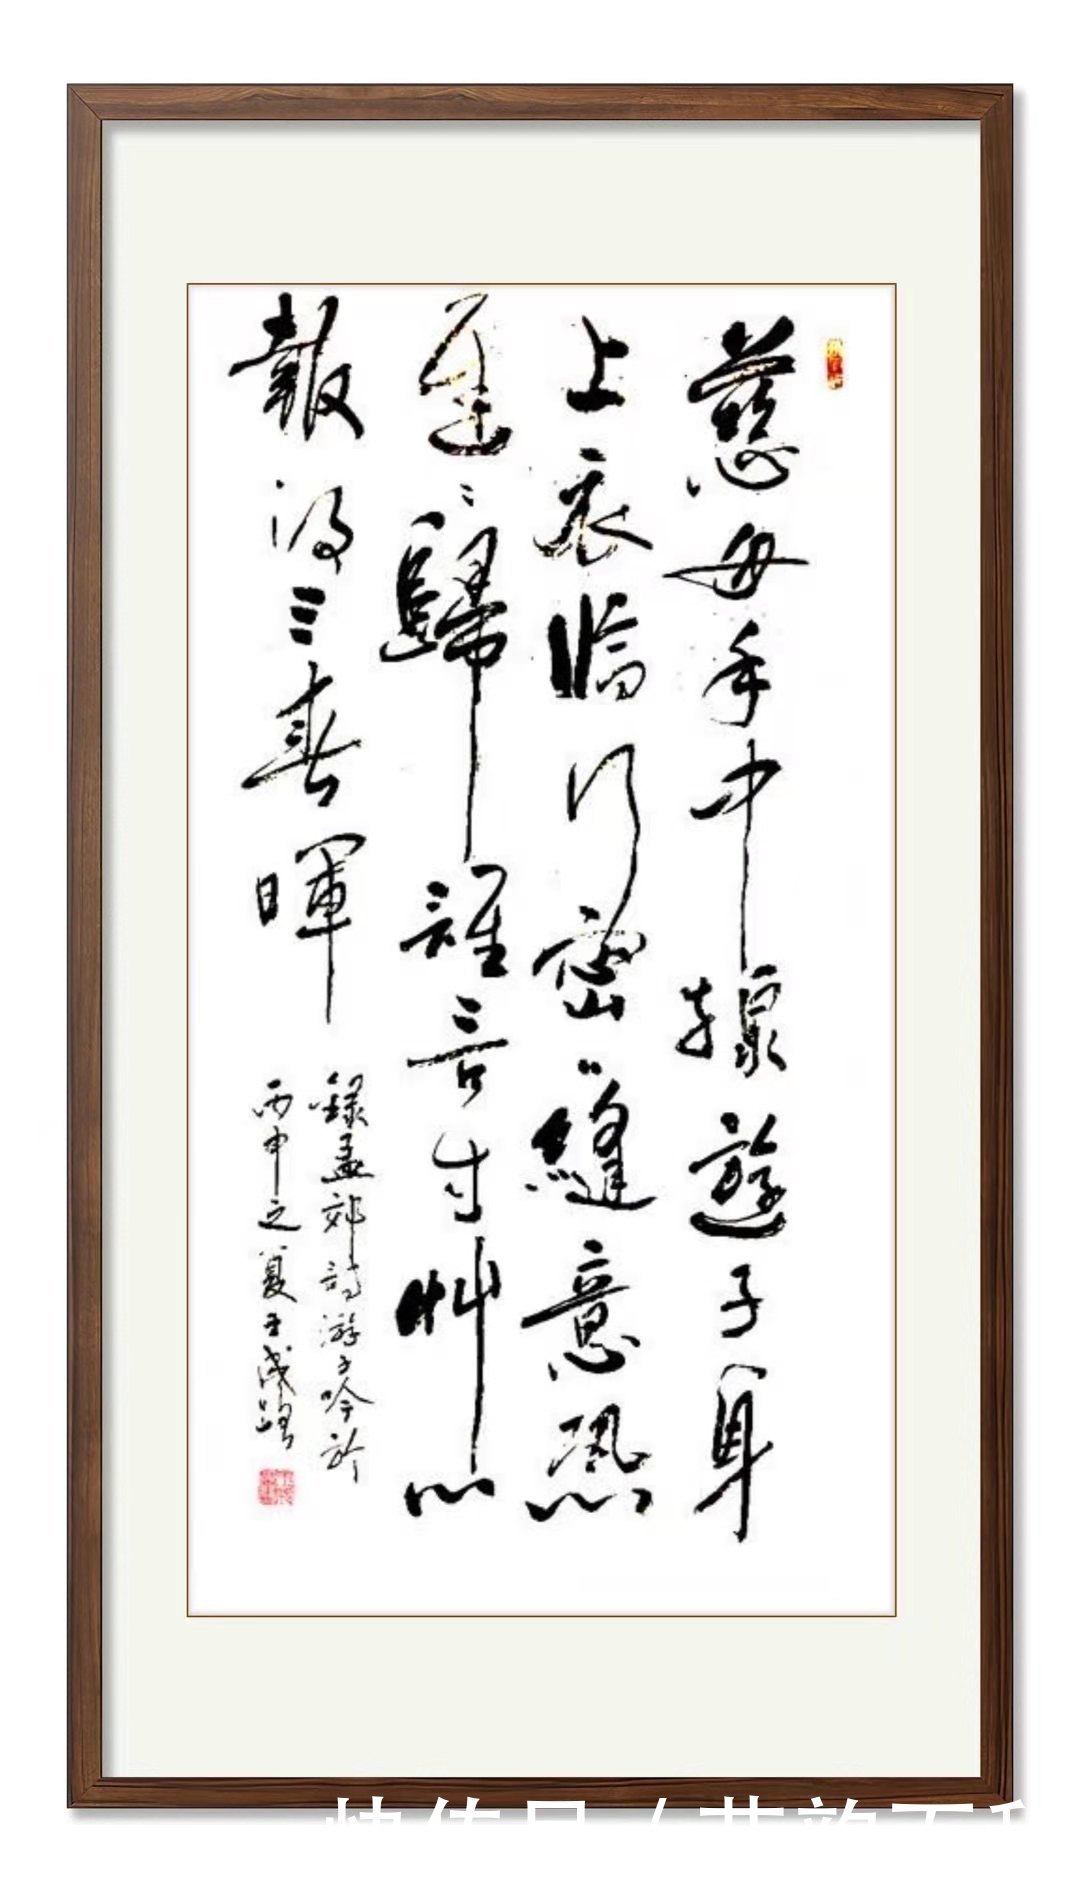 慈母手中線遊子身
上衣臨行密〻縫意恐
遲〻歸誰言寸艸心
報得三春暉
錄孟郊詩游子吟於
丙申之夏王成
快传号/